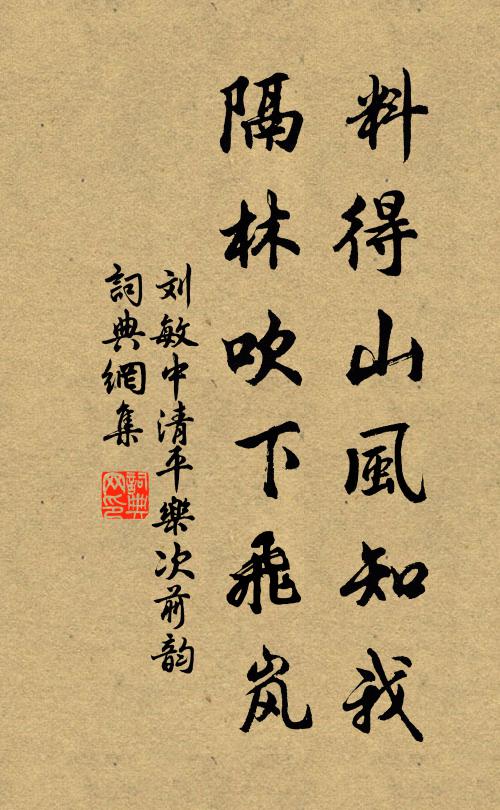 料得山風知我
隔林吹下飛岚
刘敏中清平樂次前韵
詞典網集
詞典
网印